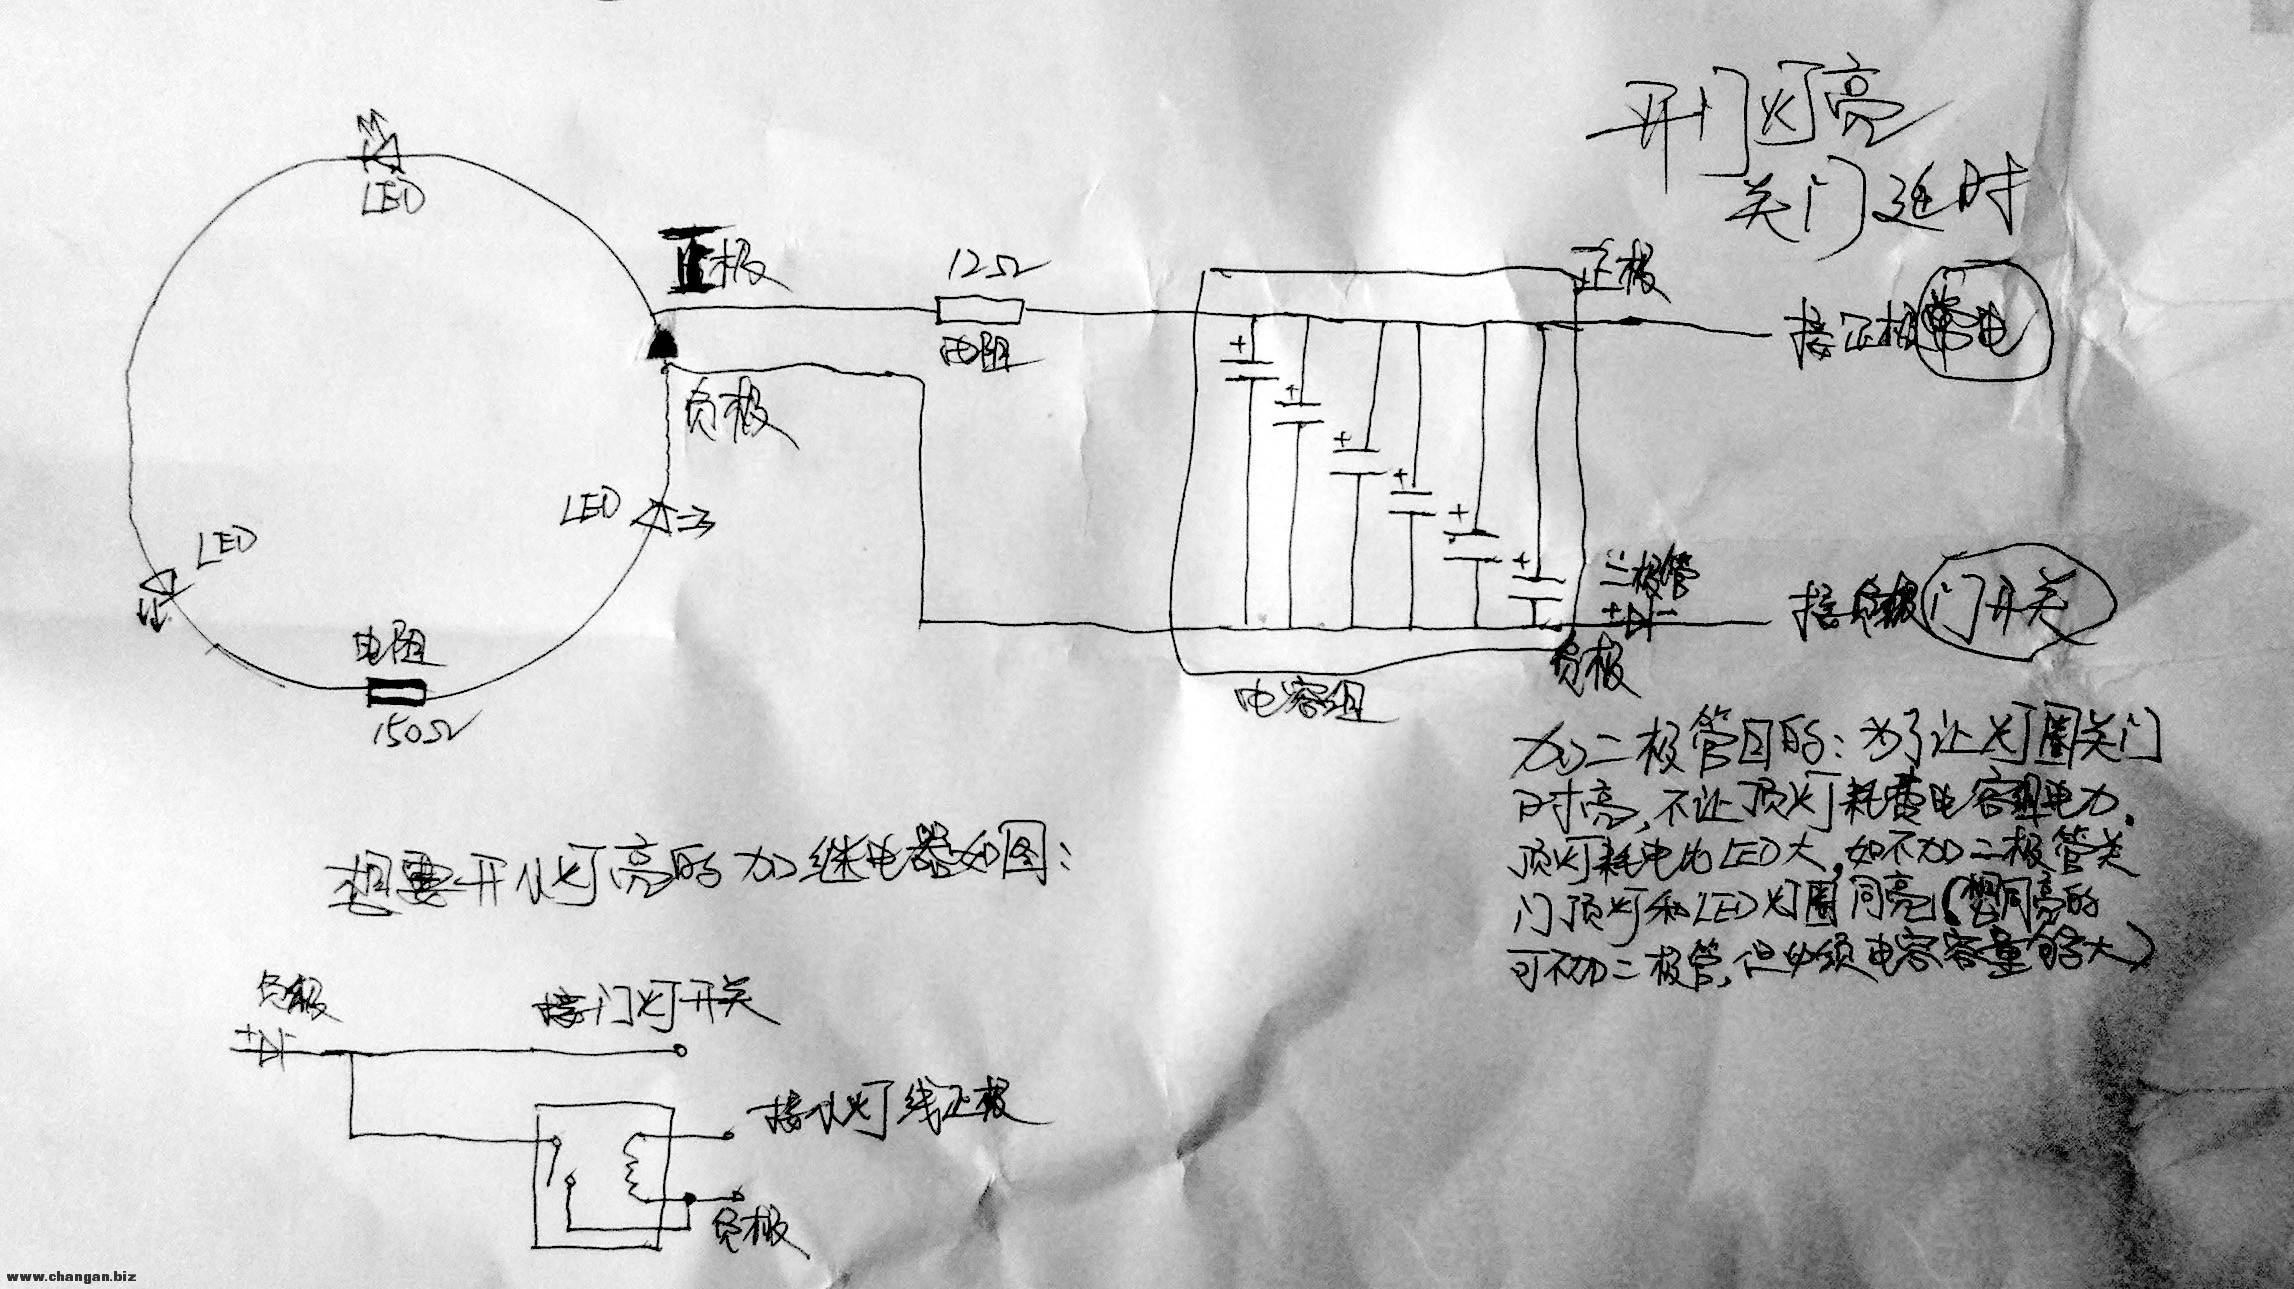 开门灯亮
关门延时
LED
正极
12Ω
电阻
正极
接正极常电
负极
LED
LED
电阻
150Ω
二极管
+ -
接负极门开关
负极
电容组
加二极管目的：为了让灯圈关门
时亮，不让顶灯耗费电容组电力.
顶灯耗电比LED大，如不加二极管关
门顶灯和LED灯圈同亮（想同亮的
可不加二极管，但必须电容容量够大）
想要开小灯亮的加继电器如图：
负极
+ -
接门灯开关
接小灯线正极
负极
www.changan.biz